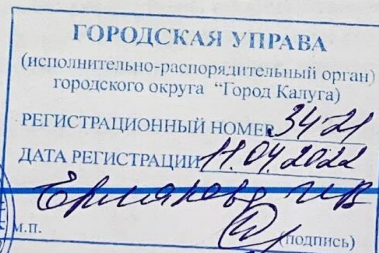 ГОРОДСКАЯ УПРАВА
(исполнительно-распорядительный орган)
городского округа “Город Калуга)
РЕГИСТРАЦИОННЫЙ НОМЕР 3421
ДАТА РЕГИСТРАЦИИ 11.04.2022
М.П.
(подпись)